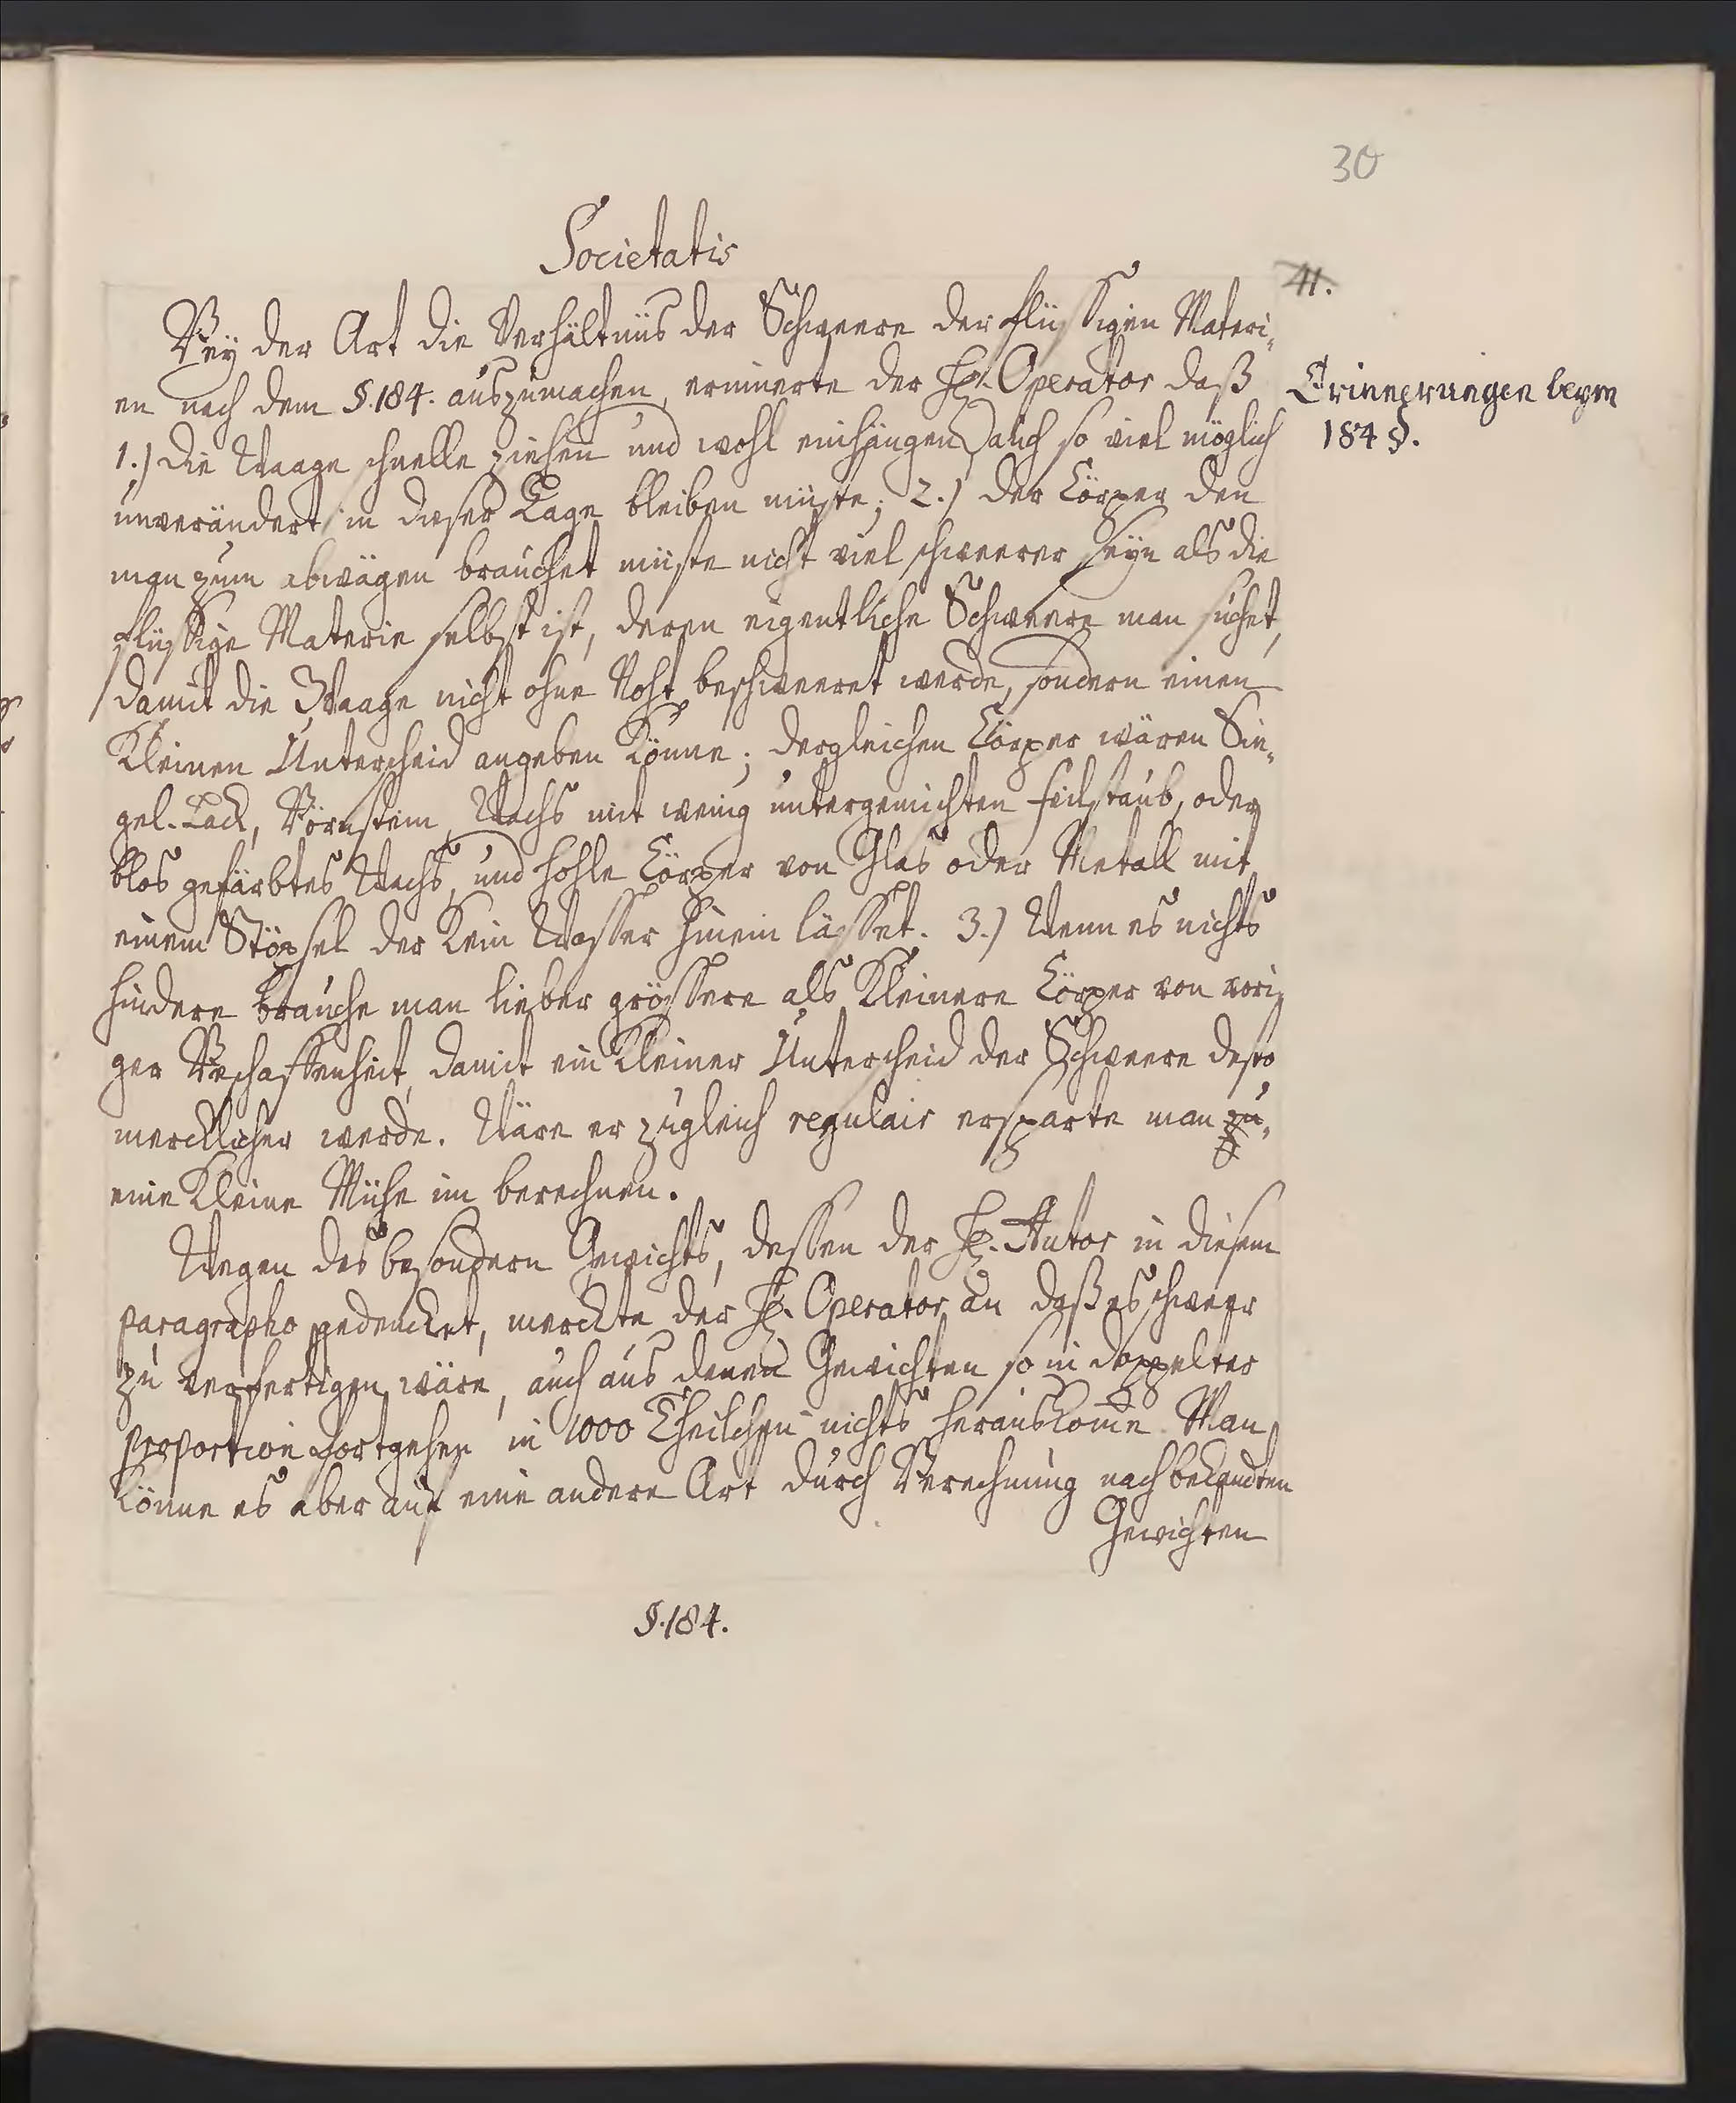 30
Societatis
41.
Bey der Art die Verhältnüs der Schweere der flüssigen Materi-
en nach dem §.184. auszumachen, erinnerte der H. Operator daß
Erinnerungen beym
184 §.
1.) die Waage schnelle ziehen und wohl einhängen, auch so viel möglich
unverändert in dieser Lage bleiben müste; 2.) der Cörper den
man zum abwägen brauchet müste nicht viel schweerer seyn als die
flüssige Materie selbst ist, deren eigentliche Schweere man suchet,
damit die Waage nicht ohne Noht beschweeret werde, sondern einen
Kleinen Unterscheid angeben könne; dergleichen Cörper wären Sie-
gel-Lack, Börnstein, Wachs mit wenig untergemichten feilstaub, oder
blos gefärbtes Wachs, und hohle Cörper von Glas oder Metall mit
einem Stöpsel der kein Wasser hinein lässet. 3.) Wenn es nichts
hindere brauche man lieber grössere als Kleinere Cörper von vori-
ger Beschaffenheit, damit ein Kleiner Unterscheid der Schweere desto
mercklicher werde. Wäre er zugleich regulair ersparte man
eine Kleine Mühe im berechnen.
Wegen des besondern Gewichts, dessen der H. Autor in diesem
paragrapho gedencket, merckte der H. Operator an daß es schweer
zu verfertigen wäre, auch aus denen Gewichten so in doppelter
proportion fortgehen in 1000 Theilchen nichts herauskom̄e. Man
könne es aber auf eine andere Art durch Berechnung nach bekandten
Gewichten
§.184.